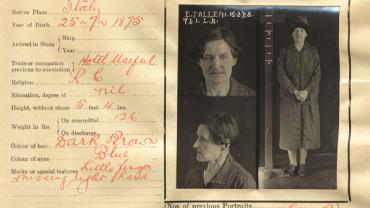 Native Place Italy
Year of Birth 25-7-1875
Arrived in State { Ship
Year
Trade or occupation previous to conviction } Hotel Useful
Religion R C
Education, degree of nil
Height, without shoes 5 feet 4 ins.
Weight in lbs. { On committed 126
On discharge
Colour of hair Dark Brown
Colour of eyes Blue
Marks or special features Little finger
missing right hand
E. FALLENI.
(Nos. of previous Portraits